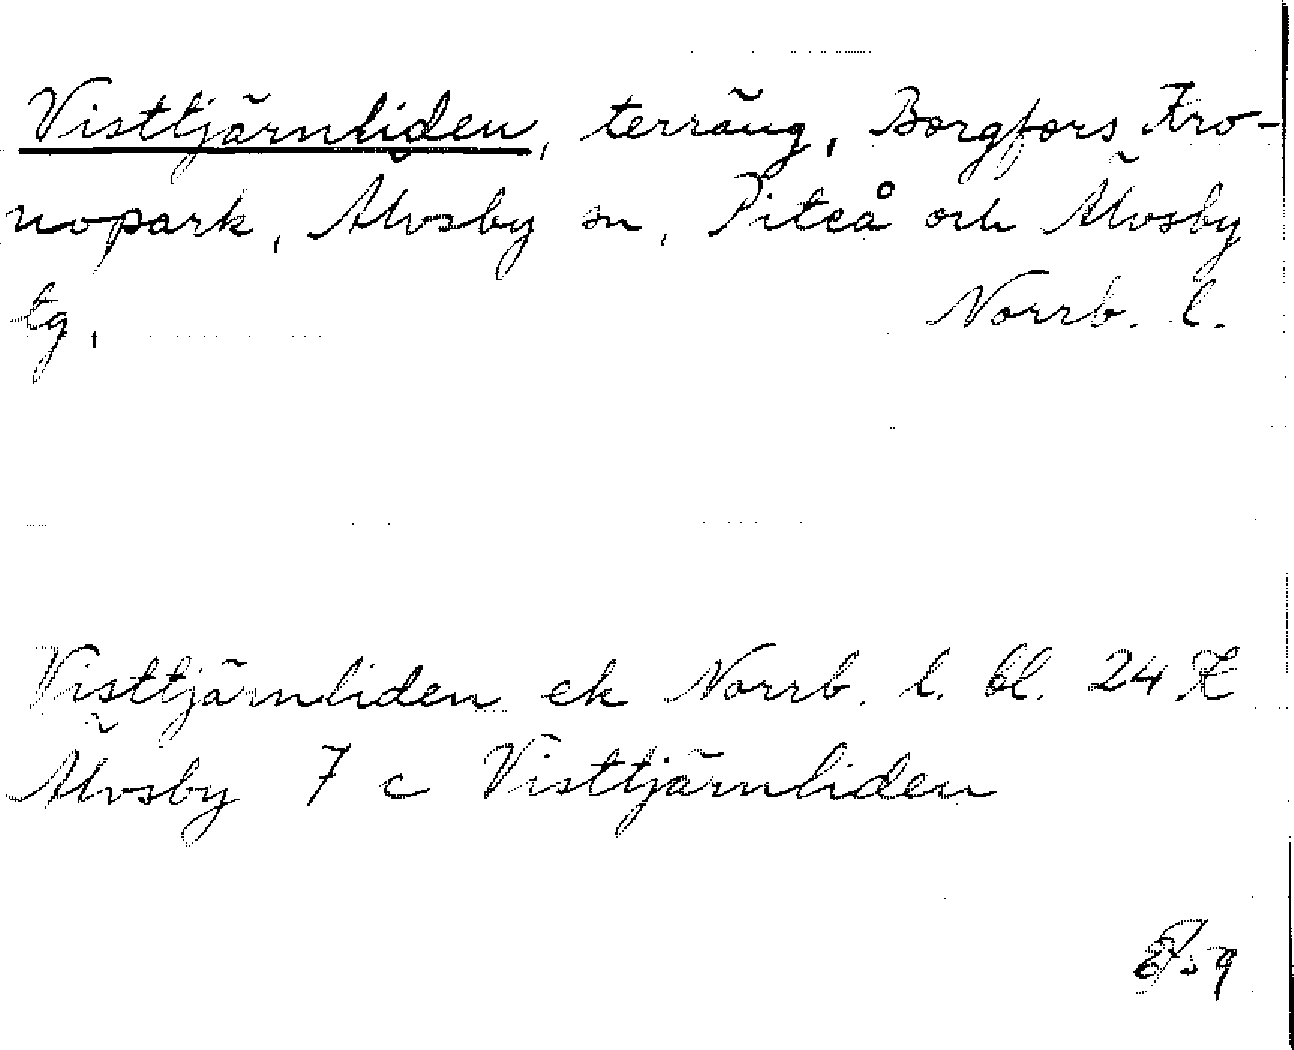 Visttjärnliden, terräng, Borgfors Kro-
nopark, Älvsby sn, Piteå och Älvsby
tg, Norrb. l.
Visttjärnliden ek Norrb. l. bl. 24 K
Älvsby 7 c Visttjärnliden
59